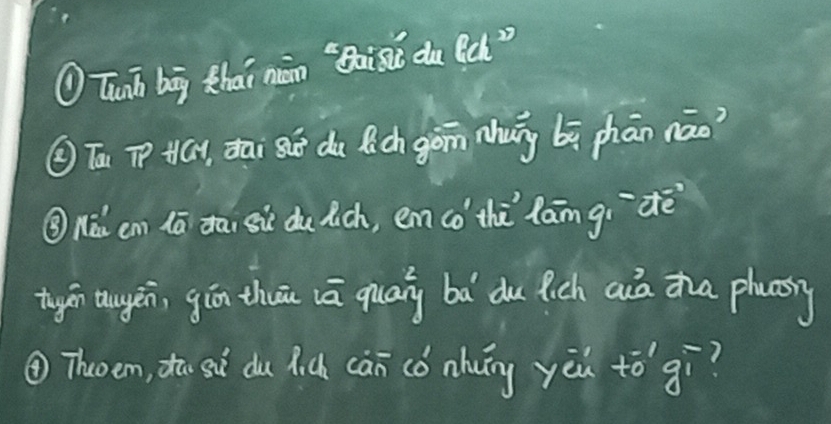 ① Trình bày khái niệm "Đại sứ du lịch"
② Tại TP HCM, đại sứ du lịch gồm những bộ phận nào?
③ Nếu em là đại sứ du lịch, em có thể làm gì để
tuyên truyền, giới thiệu và quảng bá du lịch của địa phương
④ Theo em, đại sứ du lịch cần có những yếu tố gì?